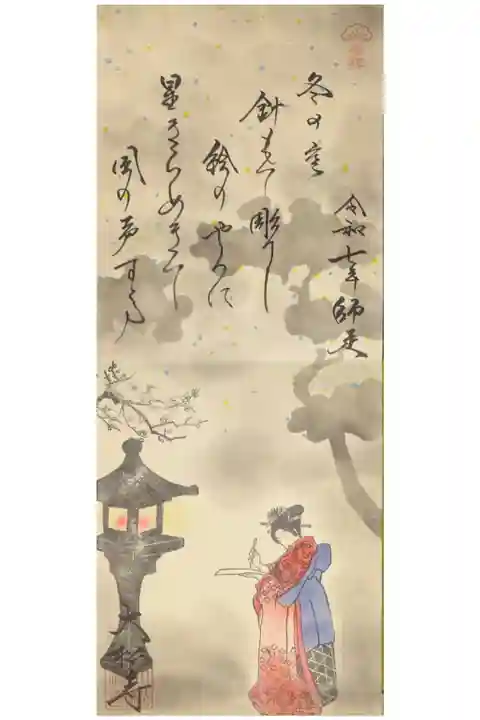 令和七年師走
冬の空
針もて彫りし
絵のやうに
星きらめきて
風の声する
大松寺